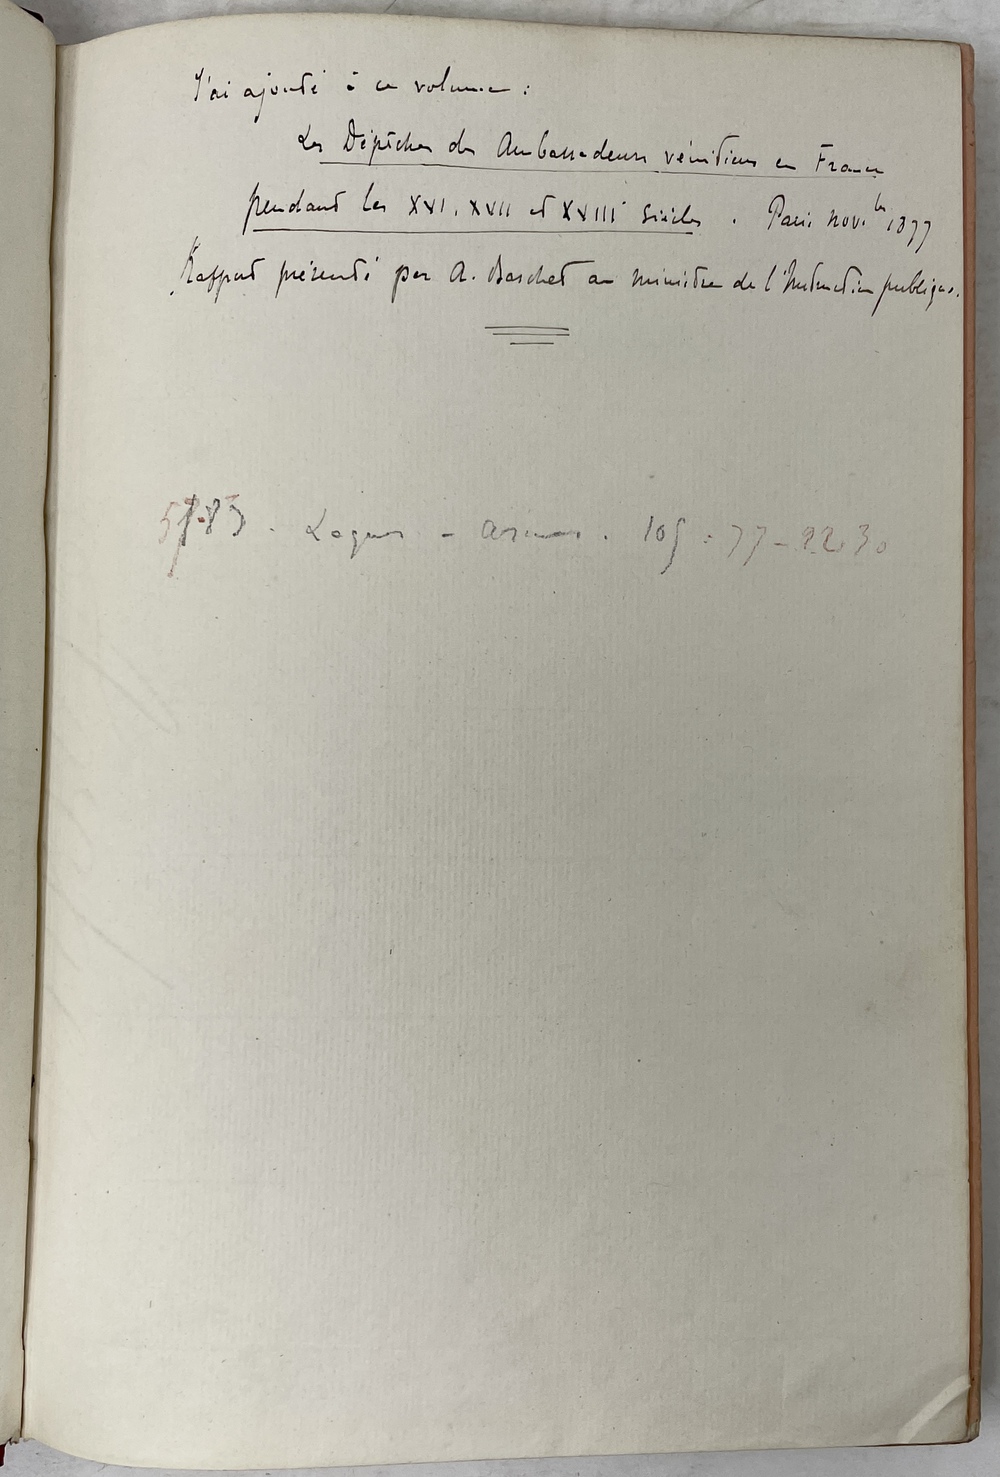 J'ai ajouté à ce volume :
Les Dépêches des Ambassadeurs vénitiens en France
pendant les XVI, XVII et XVIII siècles . Paris nov.bre 1877
Rapport présenté par A. Baschet au ministre de l'Instruction publique.
- 109 : 77 - 22.30